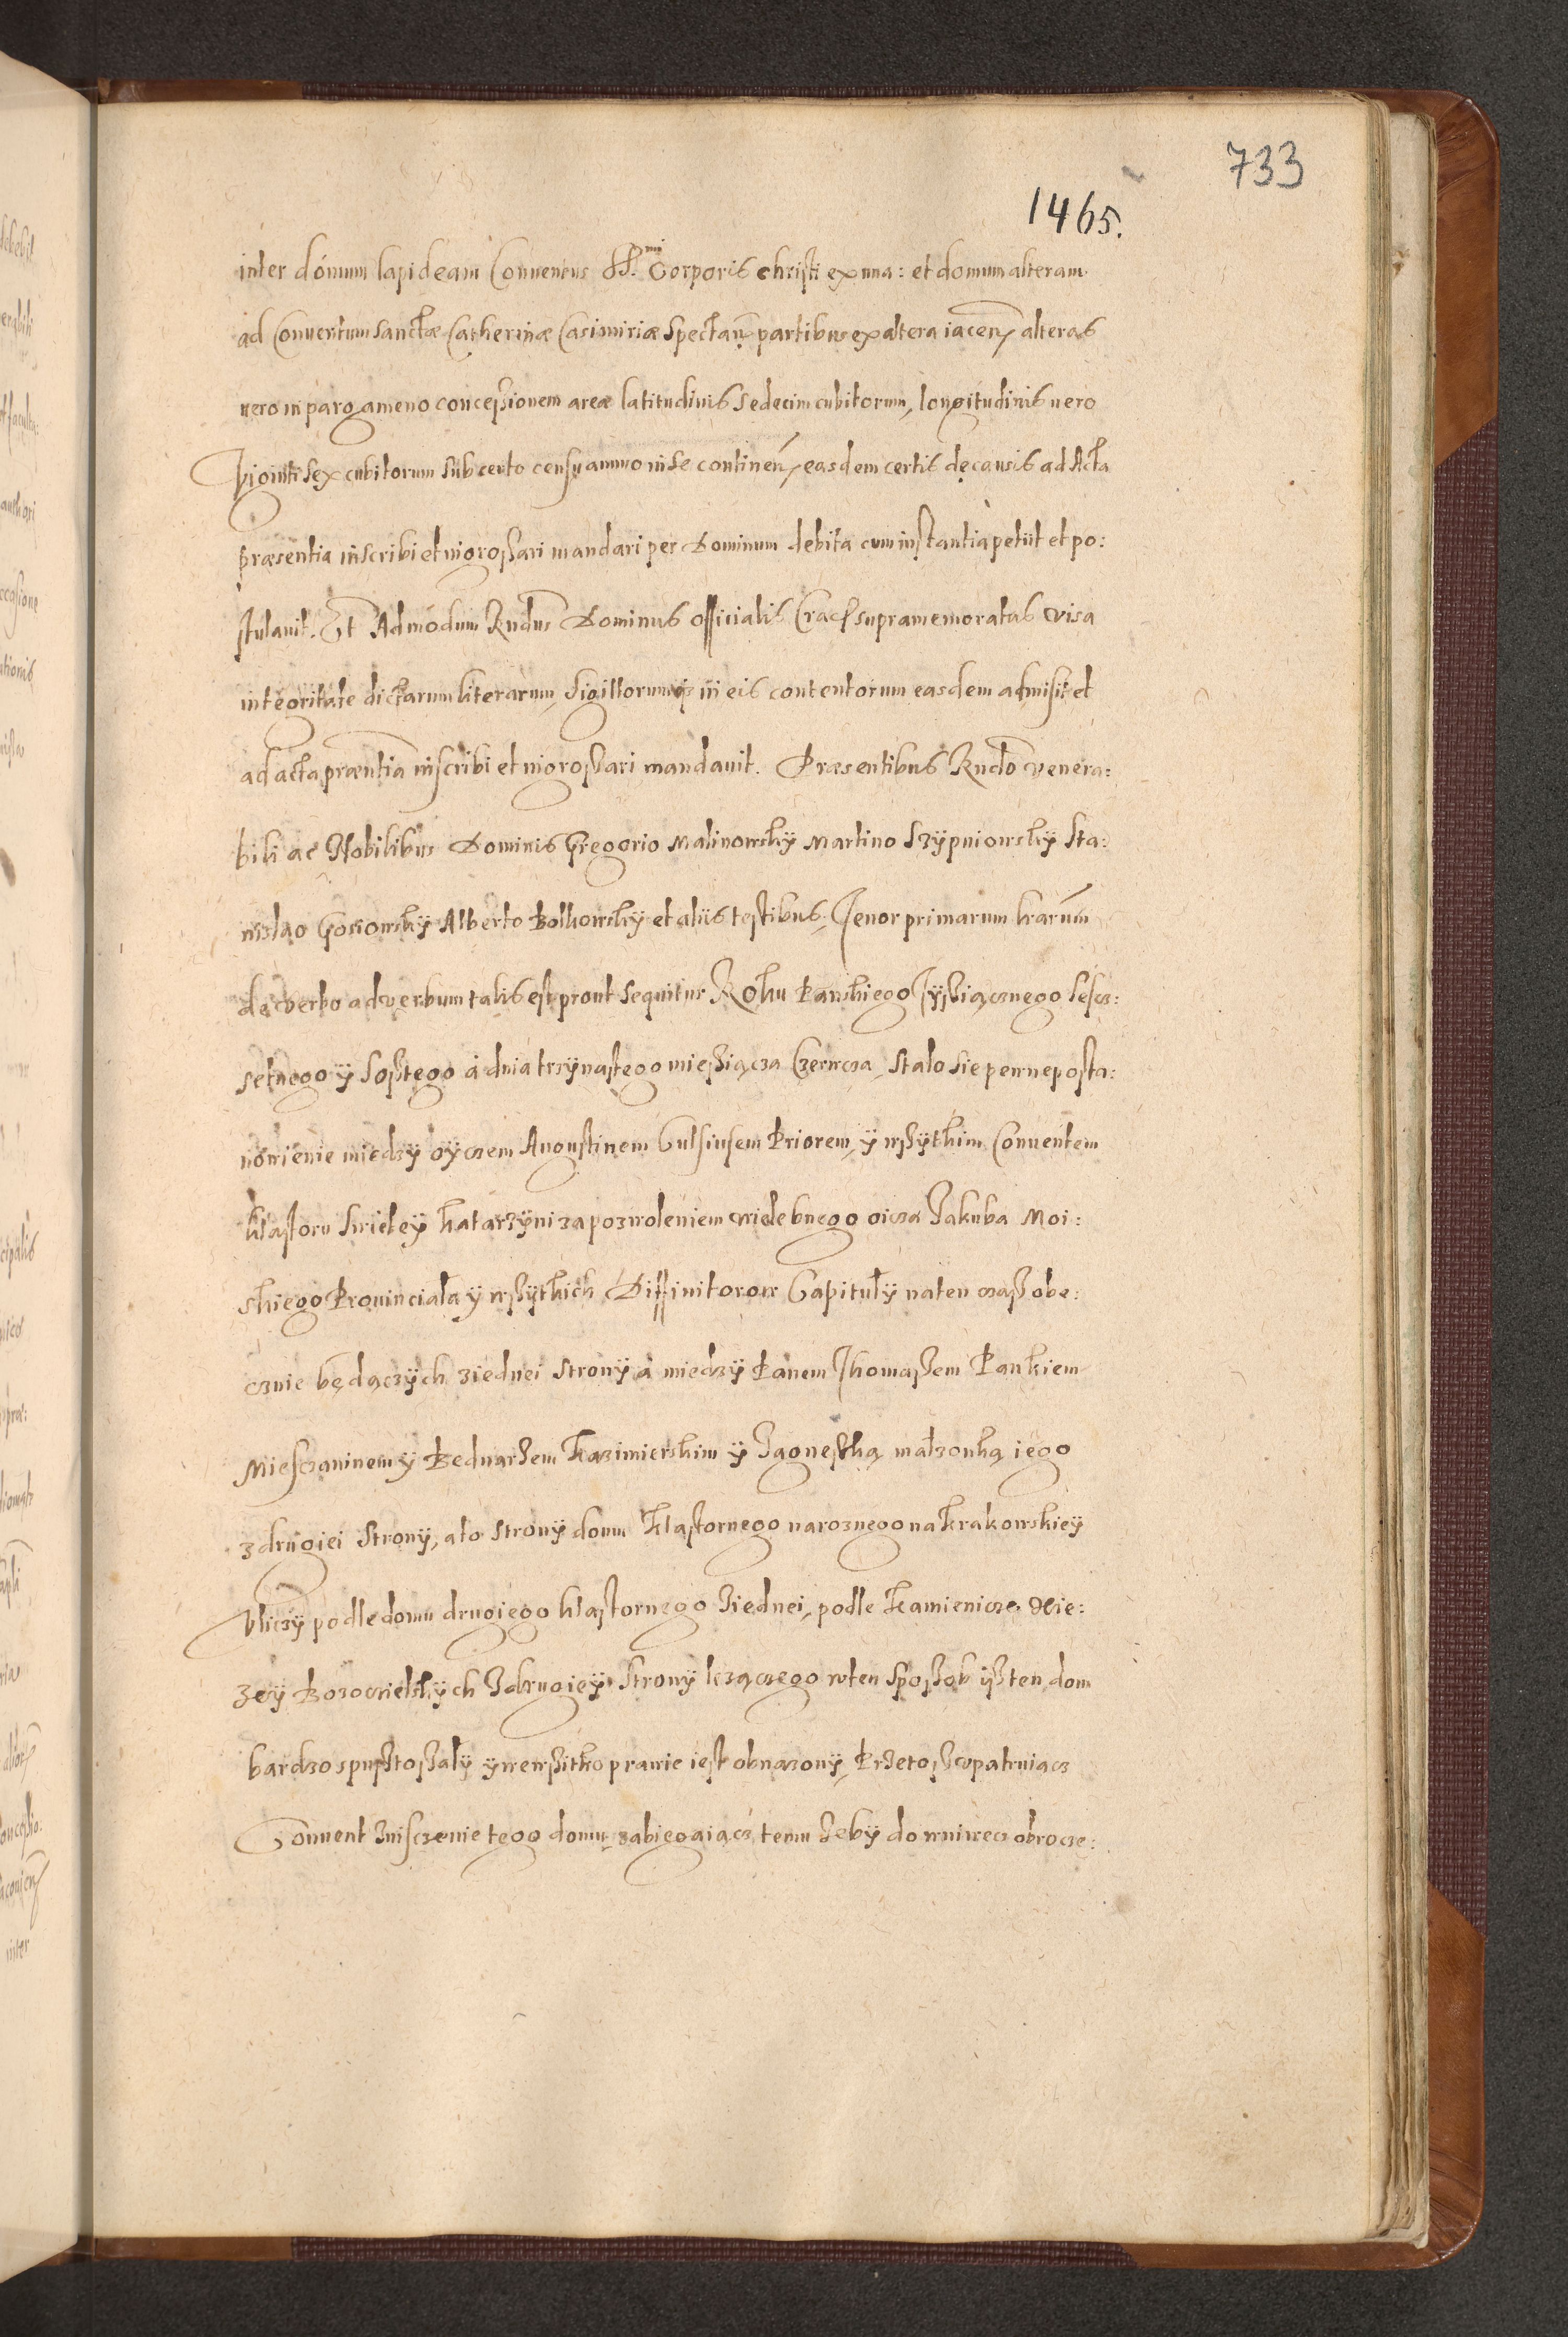 733
1465.
inter domum lapideam Conuentus SS.mi Corporis christi ex una: et domum alteram
ad Conuentum sanctæ Catherinæ Casimiriæ spectan̄ partibus ex altera iacen̄ alteras
uero in pargameno concessionem areæ latitudinis sedecim cubitorum, longitudinis uero
Viginti sex cubitorum sub certo censu annuo in se continen̄ easdem certis de causis ad Acta
præsentia inscribi et ingrossari mandari per Dominum debita cum instantia petiit et po:
stulauit. Et Admodum Rndus Dominus officialis Crac supramemoratas visa
integritate dictarum literarum, sigillorumq3 in eis contentorum easdem admisit et
ad acta præntia inscribi et ingrossari mandauit. Præsentibus Rndo venera:
bili ac Nobilibus Dominis Gregorio Malinowsky Martino Szÿpniowskÿ Sta:
nislao Gosiowskÿ Alberto Bolkowskÿ et aliis testibus. Tenor primarum lrarum
de verbo ad verbum talis est prout sequitur Roku Panskiego Tÿsiącznego sescz:
setnego ÿ sostego à dnia trzÿnastego miesiącza Czerwcza, stalo sie pewne posta:
nowienie miedzÿ oÿczem Augustinem Gulsiusem Priorem, ÿ wszÿtkim Conuentem
klastoru swietey katarzÿni za pozwoleniem wielebnego oicza Jakuba Moi:
skiego Prouinciala ÿ wszÿtkich Diffinitorow Capitulÿ na ten czasz obe:
cznie będączÿch z iednei stronÿ a miedzÿ Panem Thomaszem Pankiem
Miesczaninem ÿ Bednarzem kazimierskim ÿ Jagneszką małzonką iego
z drugiei stronÿ, a to stronÿ domu klastornego naroznego na krakowskieÿ
Vliczÿ podle domu drugiego klastornego z iednei, podle kamienicze
z drugieÿ stronÿ lezączego w ten sposzob isz ten dom
bardzo spustoszalÿ ÿ wewszitko prawie iest obnazonÿ, Przetosz vpatruiącz
Conuent zniszczenie tego domu, zabiegaiącz temu zebÿ do wniwecz obrocze: